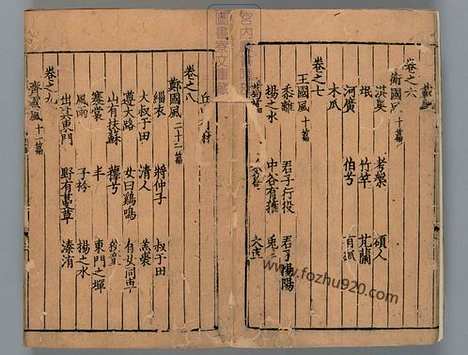 卷之六
衛國風 十篇
淇奧 考槃 碩人
氓 竹竿 芄蘭
河廣 伯兮 有狐
木瓜
卷之七
王國風 十篇
黍離 君子行役 君子陽陽
揚之水 中谷有蓷 兔
葛藟 大車
丘
卷之八
鄭國風 二十一篇
緇衣 將仲子 叔于田
大叔于田 清人 羔裘
遵大路 女曰鷄鳴 有女同車
山有扶蘇 蘀兮
褰裳 丰 東門之墠
風雨 子衿 揚之水
出其東門 野有蔓草 溱洧
卷之九
齊國風 十一篇
www.fozhu920.com